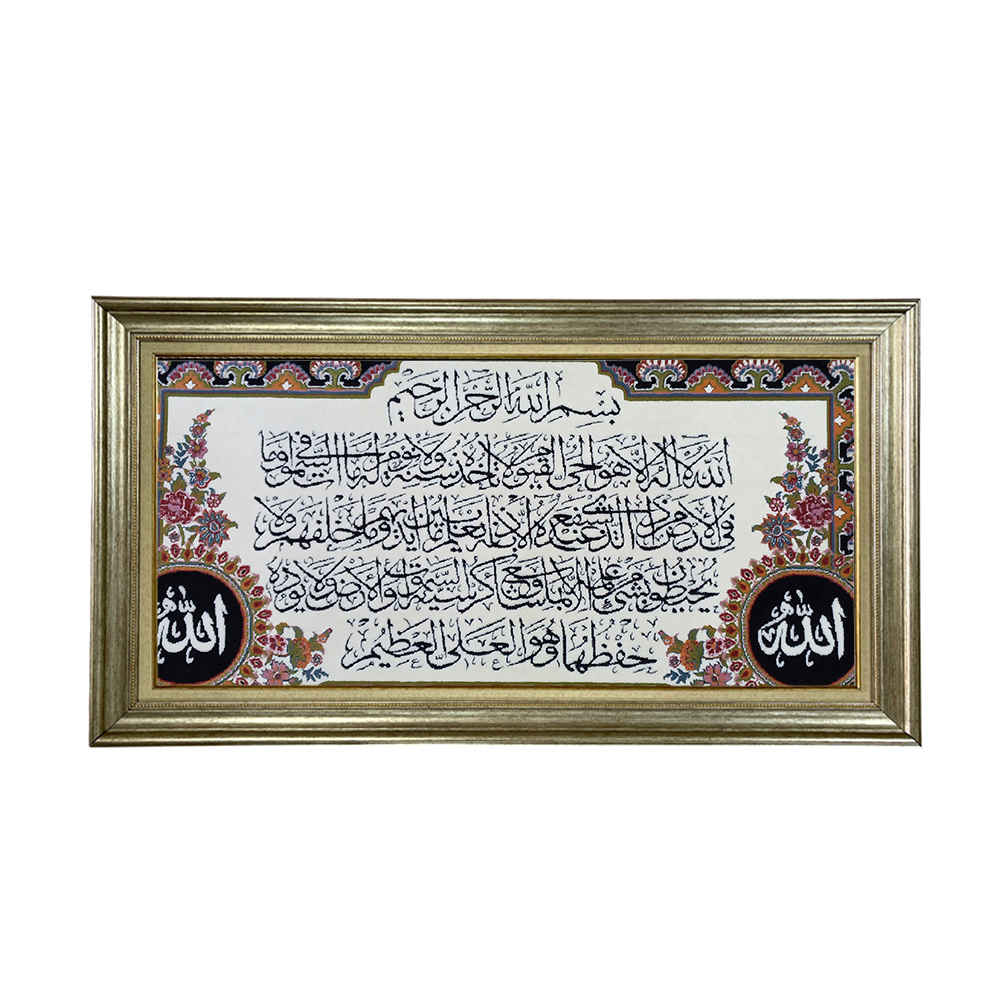 بسم الله الرحمن الرحيم
الله لا اله الا هو الحي القيوم لا تاخذه سنة ولا نوم له ما في السموات وما
في الارض من ذا الذي يشفع عنده الا باذنه يعلم ما بين ايديهم وما خلفهم ولا
يحيطون بشئ من علمه الا بما شاء وسع كرسيه السموات والارض ولا يؤده
حفظهما وهو العلي العظيم
الله
الله